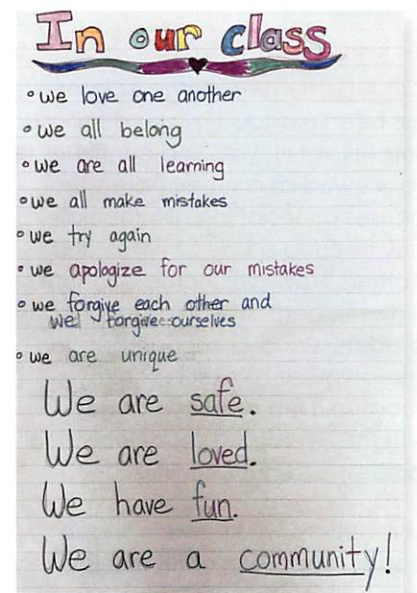 In our class
we love one another
we all belong
we are all learning
we all make mistakes
we try again
we apologize for our mistakes
we forgive each other and
we forgive ourselves
we are unique
We are safe.
We are loved.
We have fun.
We are a community!